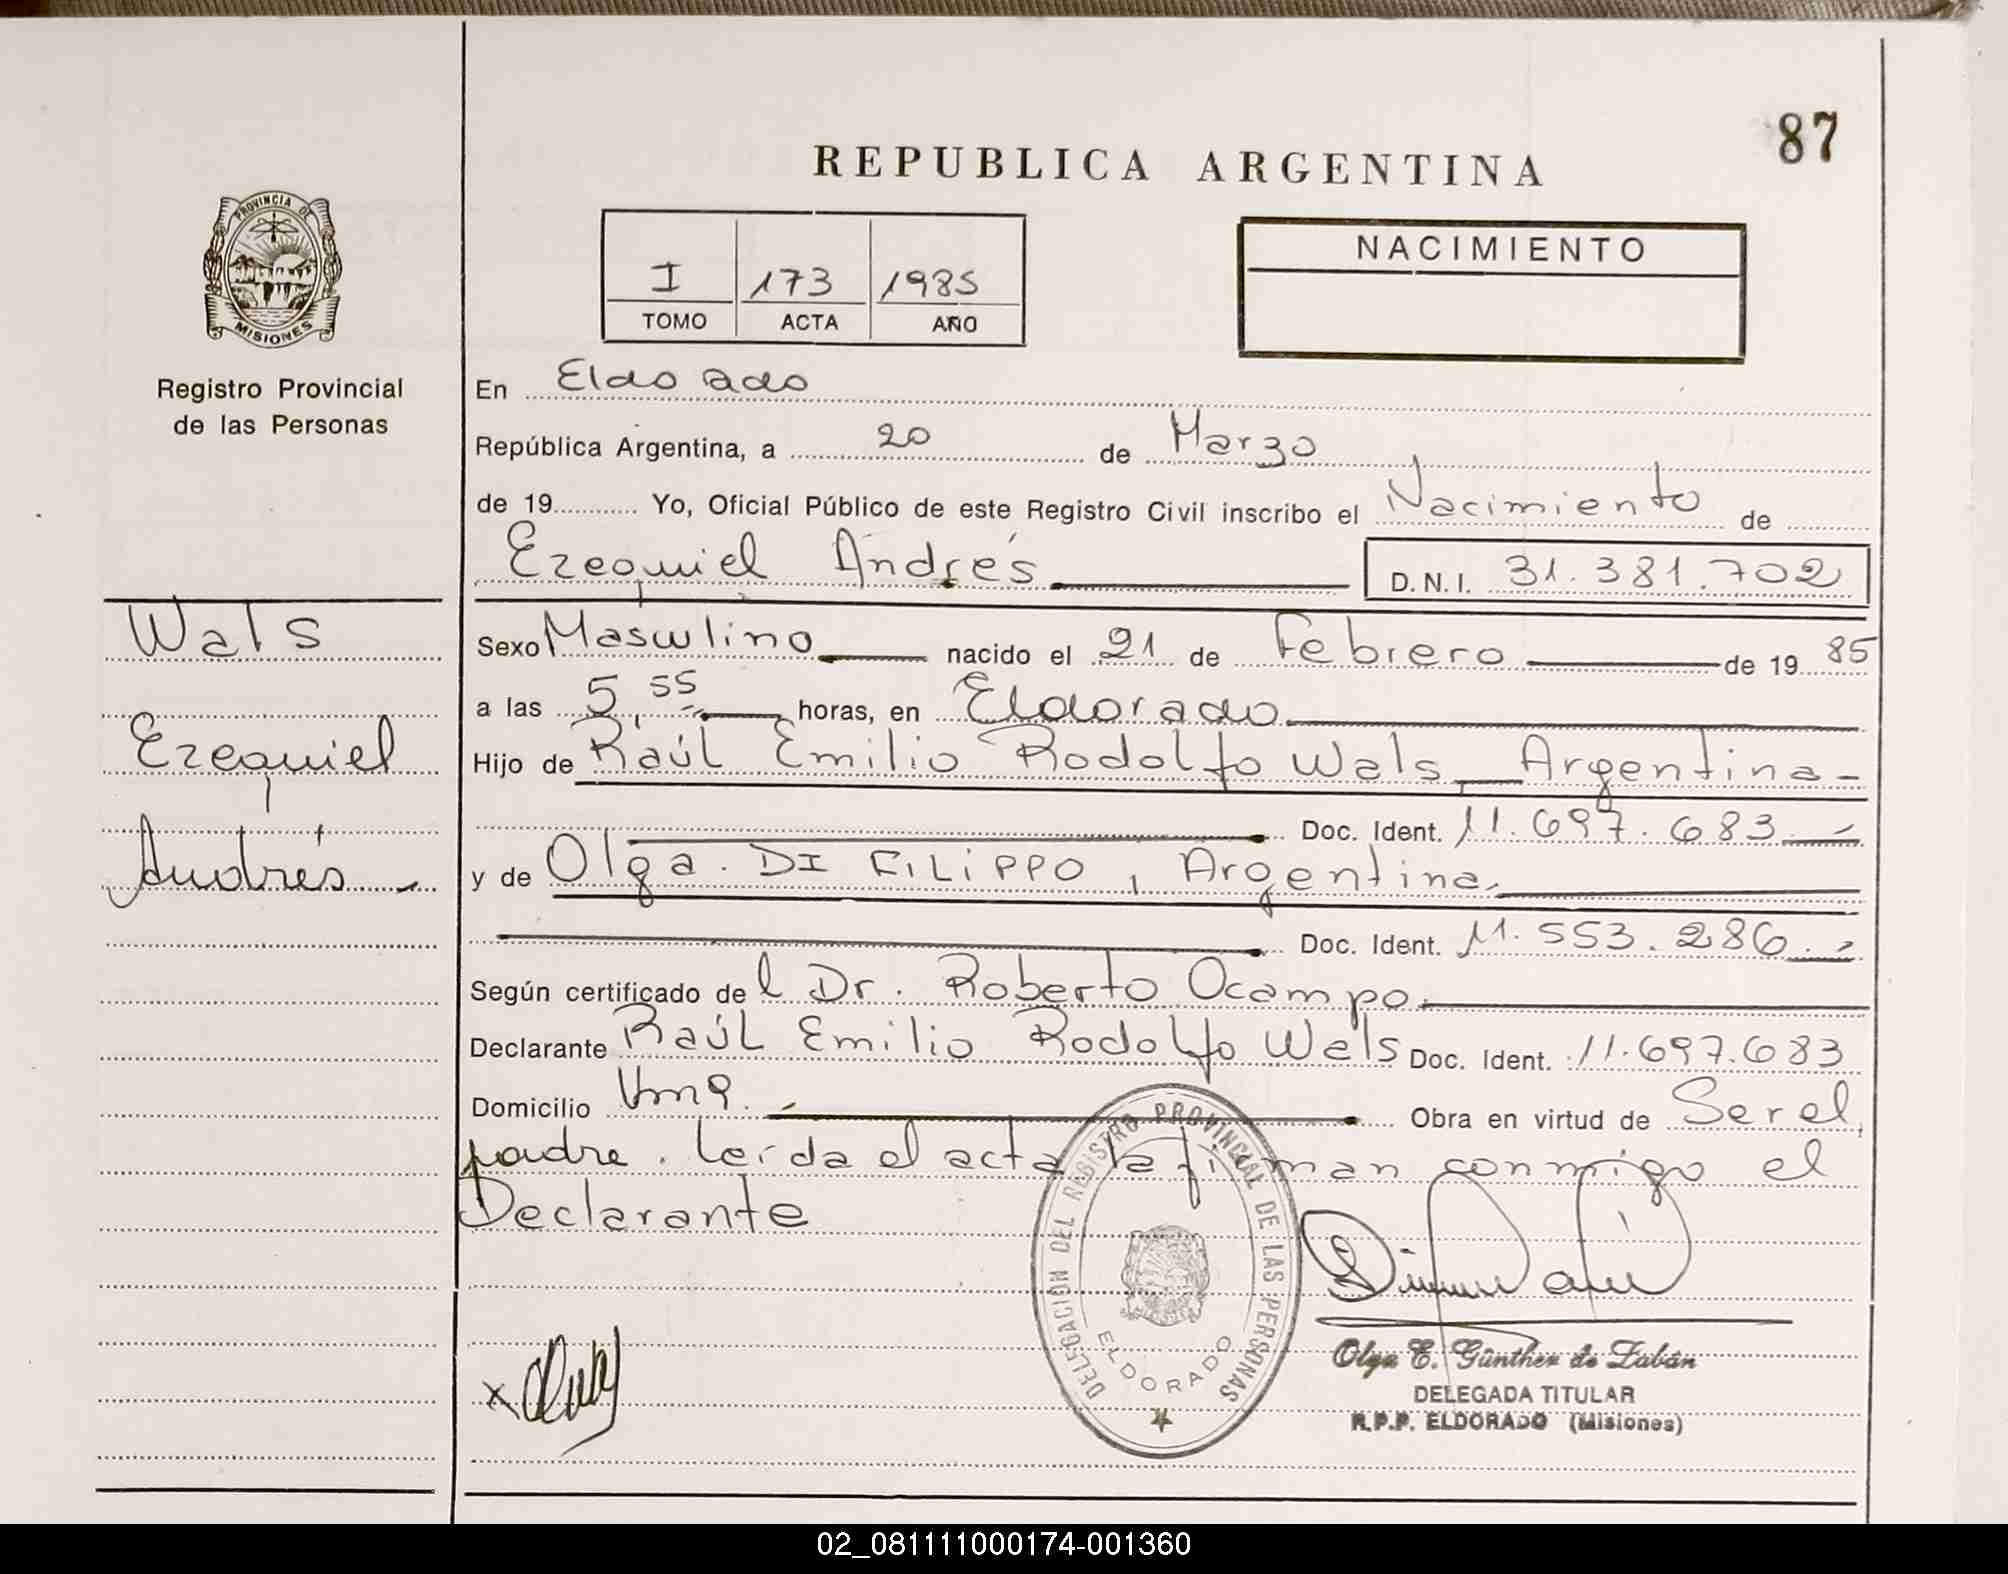 87
REPUBLICA ARGENTINA
PROVINCIA DE
MISIONES
Registro Provincial
de las Personas
I 173 1985
TOMO ACTA AÑO
NACIMIENTO
En Eldorado
República Argentina, a 20 de Marzo
de 19 Yo, Oficial Público de este Registro Civil inscribo el Nacimiento de
Ezequiel Andrés D.N.I. 31.381.702
Wals
Ezequiel
Andrés
Sexo Masculino nacido el 21 de Febrero de 1985
a las 5,55 horas, en Eldorado
Hijo de Raúl Emilio Rodolfo Wals Argentina
Doc. Ident. 11.697.683
y de Olga DI FILIPPO, Argentina
Doc. Ident. 11.553.286
Según certificado del Dr. Roberto Ocampo
Declarante Raúl Emilio Rodolfo Wals Doc. Ident. 11.697.683
Domicilio Obra en virtud de Ser el
padre. Leída el acta la firman conmigo el
Declarante
DELEGACION DEL REGISTRO PROVINCIAL DE LAS PERSONAS
ELDORADO
Olga E. Günther de Zabán
DELEGADA TITULAR
R.P.P. ELDORADO (Misiones)
02_081111000174-001360